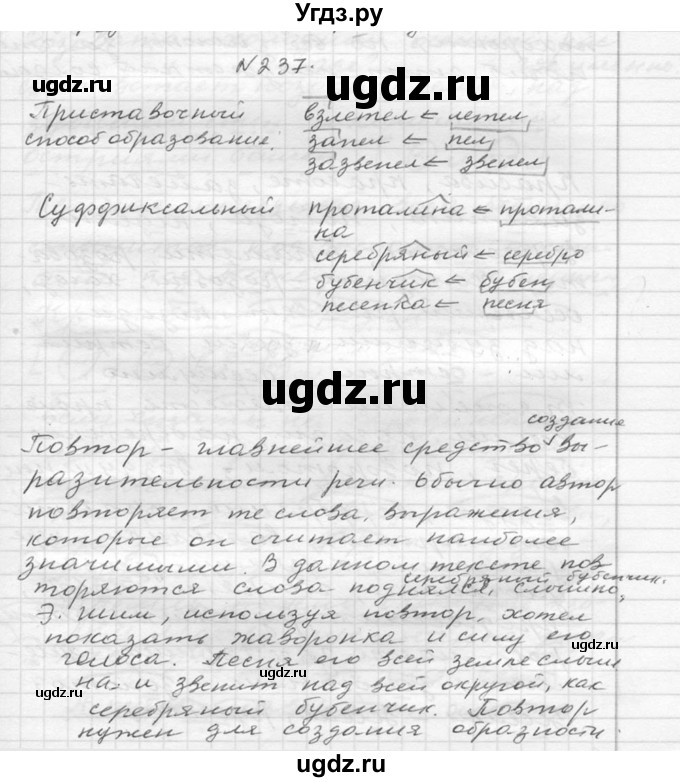 Угдз.ру
№237.
Приставочный взлетел ← летел
способ образование. запел ← пел
зазвенел ← звенел
Суффиксальный проталина ← протали-
на
серебряный ← серебро
бубенчик ← бубен
песенка ← песня
создание
Повтор – главнейшее средство вы-
разительности речи. Обычно автор
повторяет те слова, выражения,
которые он считает наиболее
значимыми. В данном тексте пов
серебряный бубенчик.
торяются слова поднялся, слышно,
Э. Шим, используя повтор, хотел
показать жаворонка и силу его
голоса. Песня его всей земле слыш
на и звенит над всей округой, как
серебряный бубенчик. Повтор
нужен для создания образности.
ugdz.ru
ugdz.ru
ugdz.ru
ugdz.ru
ugdz.ru
ugdz.ru
ugdz.ru
ugdz.ru
ugdz.ru
ugdz.ru
ugdz.ru
ugdz.ru